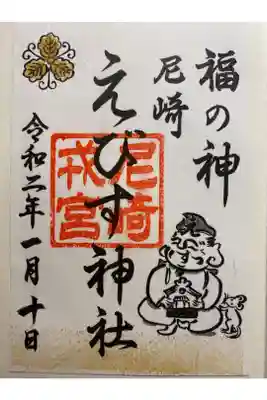 福の神
尼崎
えびす神社
尼崎
戎宮
令和二年一月十日